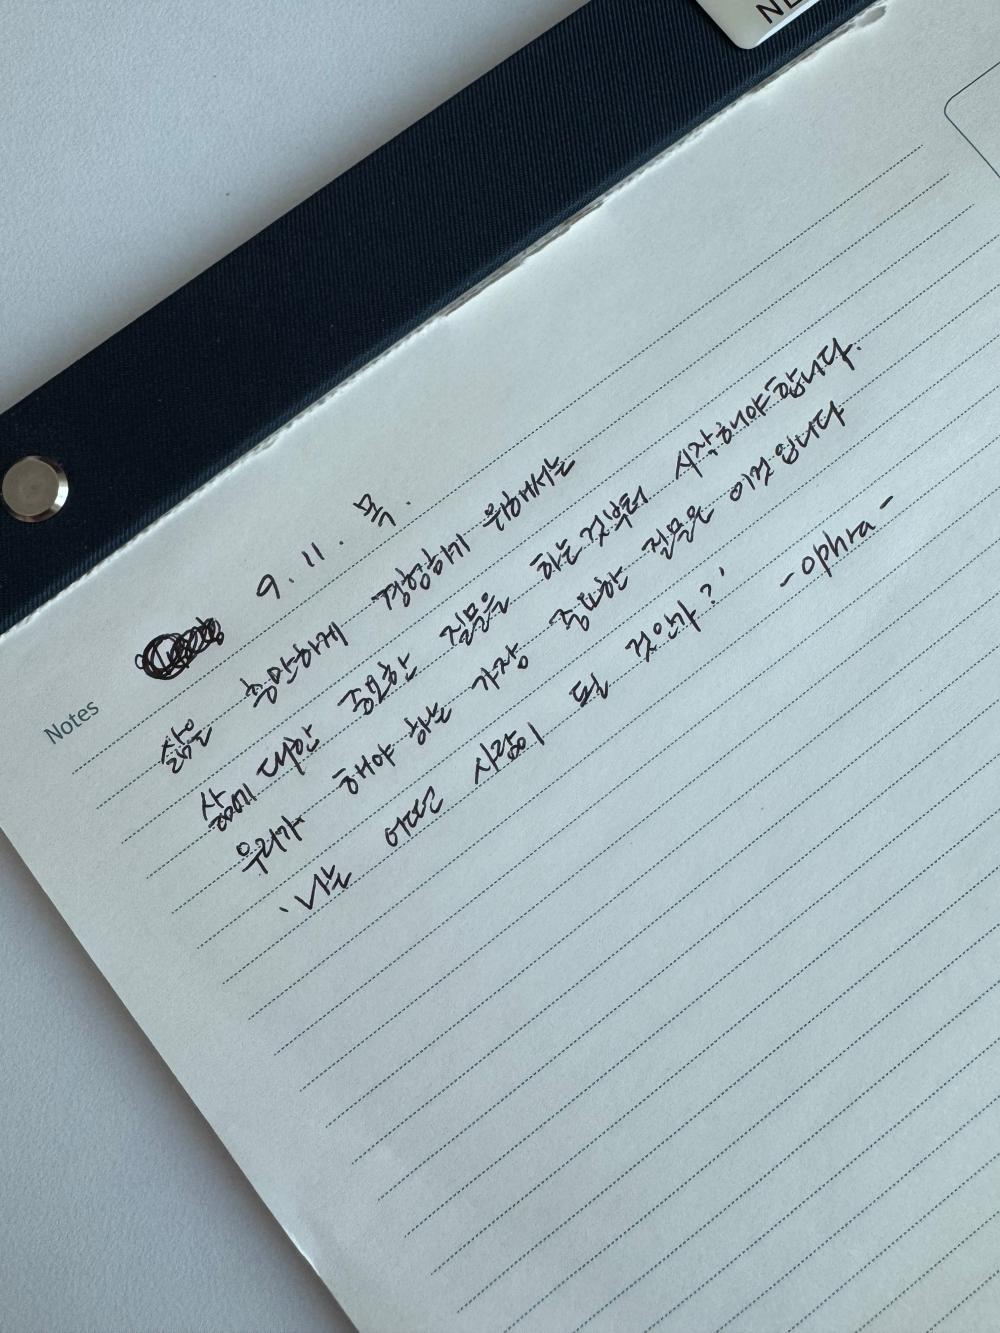 NE
Notes
9. 11. 목.
삶을 충만하게 경험하기 위해서는
삶에 대한 중요한 질문을 하는 것부터 시작해야 합니다.
우리가 해야 하는 가장 중요한 질문은 이것 입니다
'나는 어떤 사람이 될 것인가?' -ophra-